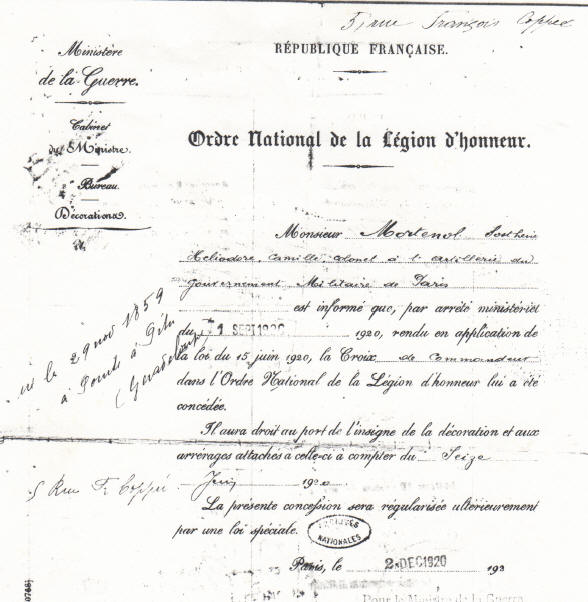 5, rue François Coppée
Ministère
de la Guerre.
Cabinet
du Ministre.
Bureau
Décorations.
RÉPUBLIQUE FRANÇAISE.
Ordre National de la Légion d'honneur.
Monsieur Mortenol Sosthène
Héliodore, Camille, colonel à l'artillerie du
Gouvernement Militaire de Paris
est informé que, par arrêté ministériel
du 1 SEPT 1920 1920, rendu en application de
la loi du 15 juin 1920, la Croix de Commandeur
dans l'Ordre National de la Légion d'honneur lui a été
concédée.
Il aura droit au port de l'insigne de la décoration et aux
arrérages attachés à celle-ci à compter du Seize
Juin 1920
La présente concession sera régularisée ultérieurement
par une loi spéciale.
ARCHIVES
NATIONALES
Paris, le 2 DEC 1920 192
Pour le Ministre de la Guerre
né le 29 nov 1859
à Pointe à Pitre
(Guadeloupe)
5 Rue F. Coppée